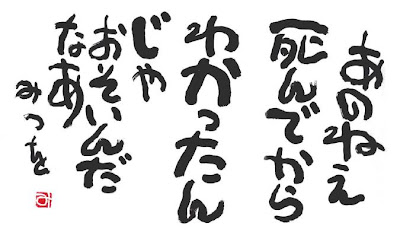 あのねえ
死んでから
わかったん
じゃ
おそいんだ
なあ
みつを